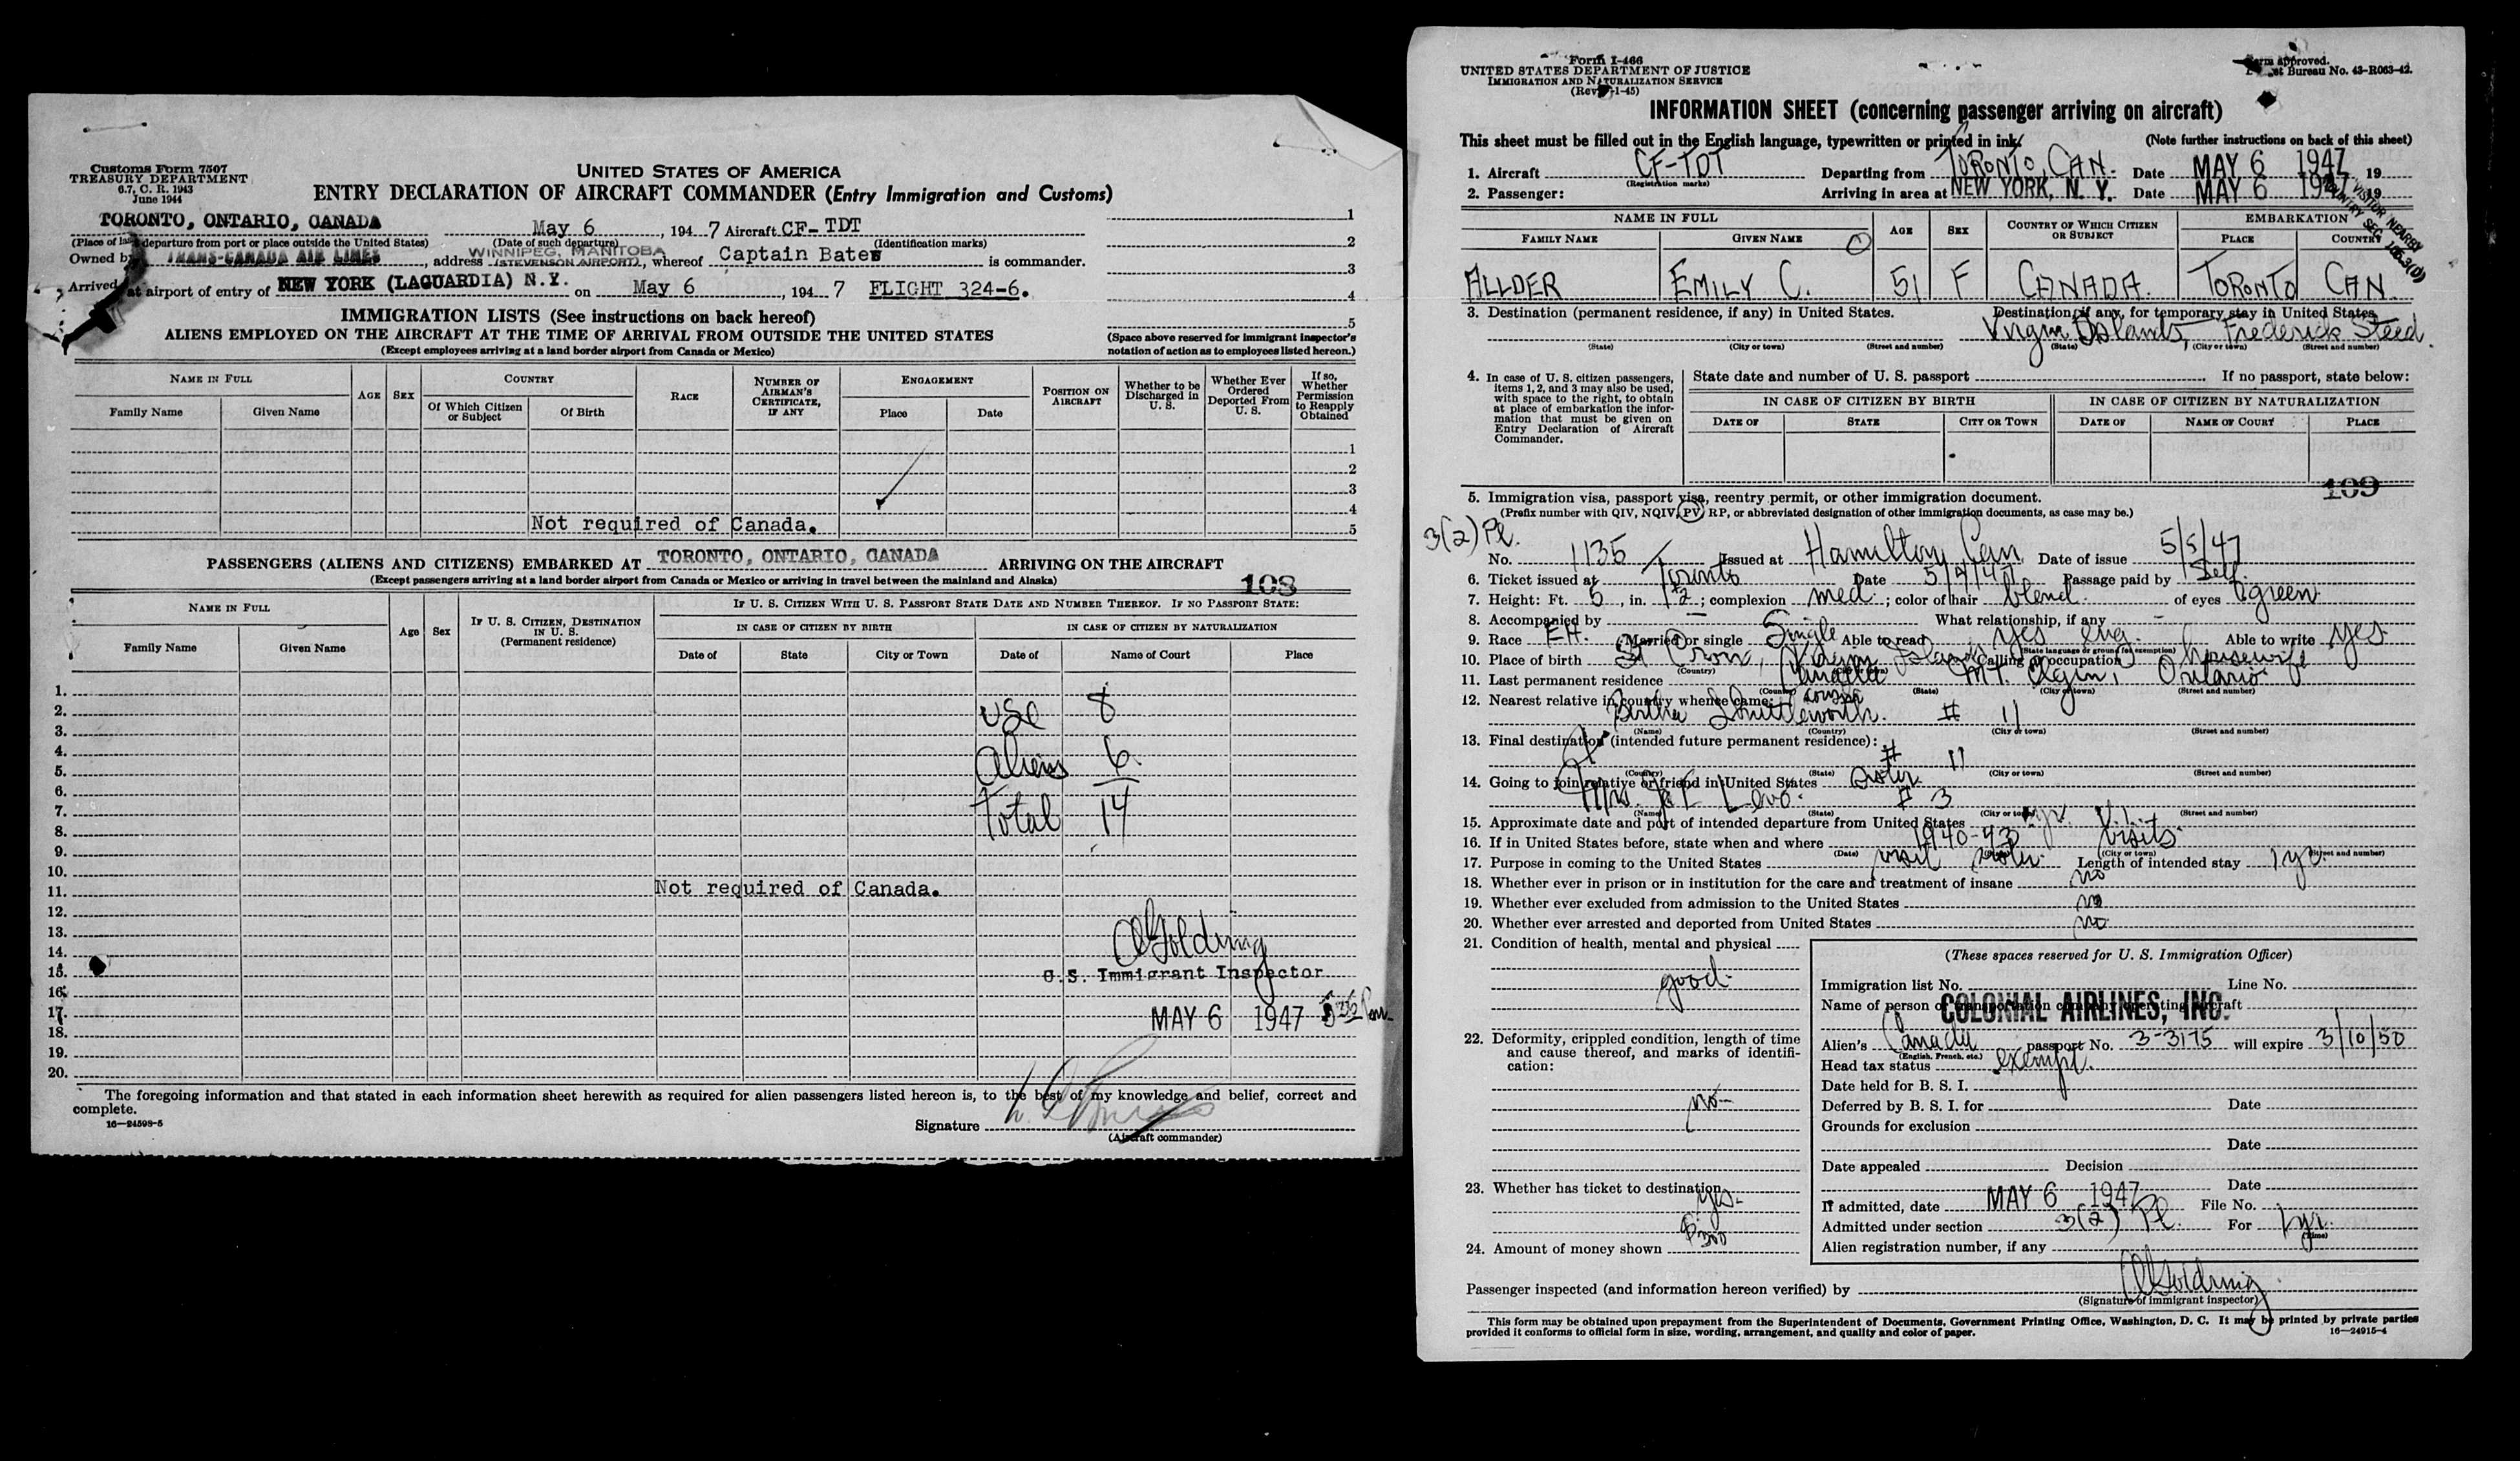 Customs Form 7507
TREASURY DEPARTMENT
6.7, C. R. 1943
June 1944
UNITED STATES OF AMERICA
ENTRY DECLARATION OF AIRCRAFT COMMANDER (Entry Immigration and Customs)
TORONTO, ONTARIO, CANADA May 6, 1947 Aircraft CF-TDT
(Place of last departure from port or place outside the United States) (Date of such departure) (Identification marks)
Owned by TRANS-CANADA AIR LINES, address WINNIPEG, MANITOBA (STEVENSON AIRPORT), whereof Captain Bates is commander.
Arrived at airport of entry of NEW YORK (LAGUARDIA) N.Y. on May 6, 1947 FLIGHT 324-6.
1
2
3
4
5
IMMIGRATION LISTS (See instructions on back hereof)
ALIENS EMPLOYED ON THE AIRCRAFT AT THE TIME OF ARRIVAL FROM OUTSIDE THE UNITED STATES
(Except employees arriving at a land border airport from Canada or Mexico)
(Space above reserved for immigrant inspector's notation of action as to employees listed hereon.)
NAME IN FULL
Family Name Given Name
AGE SEX
COUNTRY
Of Which Citizen or Subject Of Birth
RACE
NUMBER OF AIRMAN'S CERTIFICATE, IF ANY
ENGAGEMENT
Place Date
POSITION ON AIRCRAFT
Whether to be Discharged in U. S.
Whether Ever Ordered Deported From U. S.
If so, Whether Permission to Reapply Obtained
1
2
3
4
Not required of Canada. 5
PASSENGERS (ALIENS AND CITIZENS) EMBARKED AT TORONTO, ONTARIO, CANADA ARRIVING ON THE AIRCRAFT
(Except passengers arriving at a land border airport from Canada or Mexico or arriving in travel between the mainland and Alaska)
108
NAME IN FULL
Family Name Given Name
Age Sex
IF U. S. CITIZEN, DESTINATION IN U. S. (Permanent residence)
IF U. S. CITIZEN WITH U. S. PASSPORT STATE DATE AND NUMBER THEREOF. IF NO PASSPORT STATE:
IN CASE OF CITIZEN BY BIRTH IN CASE OF CITIZEN BY NATURALIZATION
Date of State City or Town Date of Name of Court Place
1.
2. USC 8
3.
4.
5. Aliens 6
6.
7.
8. Total 14
9.
10.
11. Not required of Canada.
12.
13.
14. Golding
15. U.S. Immigrant Inspector
16.
17. MAY 6 1947
18.
19.
20.
The foregoing information and that stated in each information sheet herewith as required for alien passengers listed hereon is, to the best of my knowledge and belief, correct and
complete.
16—24598-5
Signature
(Aircraft commander)
Form I-466
UNITED STATES DEPARTMENT OF JUSTICE
IMMIGRATION AND NATURALIZATION SERVICE
Form approved.
Bureau No. 43-R063-42.
INFORMATION SHEET (concerning passenger arriving on aircraft)
This sheet must be filled out in the English language, typewritten or printed in ink. (Note further instructions on back of this sheet)
1. Aircraft CF-TDT Departing from TORONTO, CAN. Date MAY 6 1947 19
(Registration marks)
2. Passenger: Arriving in area at NEW YORK, N. Y. Date MAY 6 1947 19
VISITOR NEARBY
COUNTRY SEC.
NAME IN FULL
FAMILY NAME GIVEN NAME
AGE SEX
COUNTRY OF WHICH CITIZEN OR SUBJECT
EMBARKATION
PLACE COUNTRY
ALLDER EMILY C. 51 F CANADA. TORONTO CAN.
3. Destination (permanent residence, if any) in United States. Destination, if any, for temporary stay in United States.
Virgin Islands, Frederick Steed
(State) (City or town) (Street and number) (State) (City or town) (Street and number)
4. In case of U. S. citizen passengers, items 1, 2, and 3 may also be used, with space to the right, to obtain at place of embarkation the information that must be given on Entry Declaration of Aircraft Commander.
State date and number of U. S. passport If no passport, state below:
IN CASE OF CITIZEN BY BIRTH IN CASE OF CITIZEN BY NATURALIZATION
DATE OF STATE CITY OR TOWN DATE OF NAME OF COURT PLACE
109
5. Immigration visa, passport visa, reentry permit, or other immigration document.
(Prefix number with QIV, NQIV, PV, RP, or abbreviated designation of other immigration documents, as case may be.)
3(2) Pl.
No. 1135 Issued at Hamilton, Can. Date of issue 5/5/47
6. Ticket issued at Toronto Date 5/4/47 Passage paid by Self
7. Height: Ft. 5, in. 1½; complexion med.; color of hair blond of eyes green
8. Accompanied by — What relationship, if any —
9. Race Married or single Single Able to read yes eng. Able to write yes
(State language or ground for exemption)
10. Place of birth Virgin Islands Calling or occupation housewife
(Country)
11. Last permanent residence Canada Mt. Elgin, Ontario
(Country) (State) (City or town) (Street and number)
12. Nearest relative in country whence came: cousin
Bertha Shuttleworth. # 11
(Name) (Country) (City or town) (Street and number)
13. Final destination (intended future permanent residence):
# 11
(Country) (State) (City or town) (Street and number)
14. Going to join relative or friend in United States sister
# 3
(Name) (State) (City or town) (Street and number)
15. Approximate date and port of intended departure from United States 1 yr. V.I.
16. If in United States before, state when and where 1940-43 visits
(Date) (City or town) (Street and number)
17. Purpose in coming to the United States visit sister Length of intended stay 1 yr.
18. Whether ever in prison or in institution for the care and treatment of insane no
19. Whether ever excluded from admission to the United States no
20. Whether ever arrested and deported from United States no
21. Condition of health, mental and physical
good
22. Deformity, crippled condition, length of time and cause thereof, and marks of identification:
no
23. Whether has ticket to destination
yes
24. Amount of money shown $300
(These spaces reserved for U. S. Immigration Officer)
Immigration list No. Line No.
Name of person or transportation company operating aircraft
COLONIAL AIRLINES, INC.
Alien's Canada passport No. 3-3175 will expire 3/10/50
(English, French, etc.)
Head tax status exempt.
Date held for B. S. I.
Deferred by B. S. I. for Date
Grounds for exclusion
Date
Date appealed Decision
Date
If admitted, date MAY 6 1947 File No.
Admitted under section 3(2) Pl. For 1 yr.
(Time)
Alien registration number, if any
Passenger inspected (and information hereon verified) by Golding
(Signature of immigrant inspector)
This form may be obtained upon prepayment from the Superintendent of Documents, Government Printing Office, Washington, D. C. It may be printed by private parties
provided it conforms to official form in size, wording, arrangement, and quality and color of paper.
16—24915-4